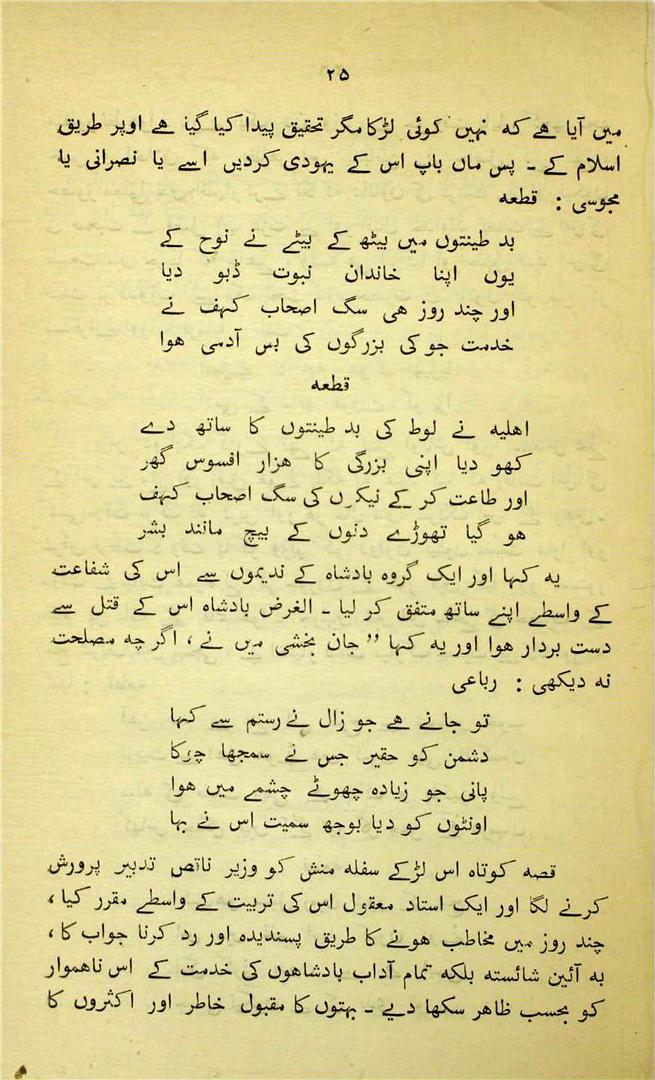 ۲۵
میں آیا ہے کہ نہیں کوئی لڑکا مگر تحقیق پیدا کیا گیا ہے اوپر طریق
اسلام کے ۔ پس ماں باپ اس کے یہودی کردیں اسے یا نصرانی یا
مجوسی : قطعہ
بد طینتوں میں بیٹھ کے بیٹے نے نوح کے
یوں اپنا خاندان نبوت ڈبو دیا
اور چند روز ہی سگ اصحاب کہف نے
خدمت جو کی بزرگوں کی بس آدمی ہوا
قطعہ
اہلیہ نے لوط کی بد طینتوں کا ساتھ دے
کھو دیا اپنی بزرگی کا ہزار افسوس گھر
اور طاعت کر کے نیکوں کی سگ اصحاب کہف
ہو گیا تھوڑے دنوں کے بیچ مانند بشر
یہ کہا اور ایک گروہ بادشاہ کے ندیموں سے اس کی شفاعت
کے واسطے اپنے ساتھ متفق کر لیا ۔ الغرض بادشاہ اس کے قتل سے
دست بردار ہوا اور یہ کہا ”جان بخشی میں نے ، اگر چہ مصلحت
نہ دیکھی : رباعی
تو جانے ہے جو زال نے رستم سے کہا
دشمن کو حقیر جس نے سمجھا چوکا
پانی جو زیادہ چھوٹے چشمے میں ہوا
اونٹوں کو دیا بوجھ سمیت اس نے بہا
قصہ کوتاہ اس لڑکے سفلہ منش کو وزیر ناقص تدبیر پرورش
کرنے لگا اور ایک استاد معقول اس کی تربیت کے واسطے مقرر کیا ،
چند روز میں مخاطب ہونے کا طریق پسندیدہ اور رد کرنا جواب کا ،
بہ آئین شائستہ بلکہ تمام آداب بادشاہوں کی خدمت کے اس ناہموار
کو بحسب ظاہر سکھا دیے ۔ بہتوں کا مقبول خاطر اور اکثروں کا